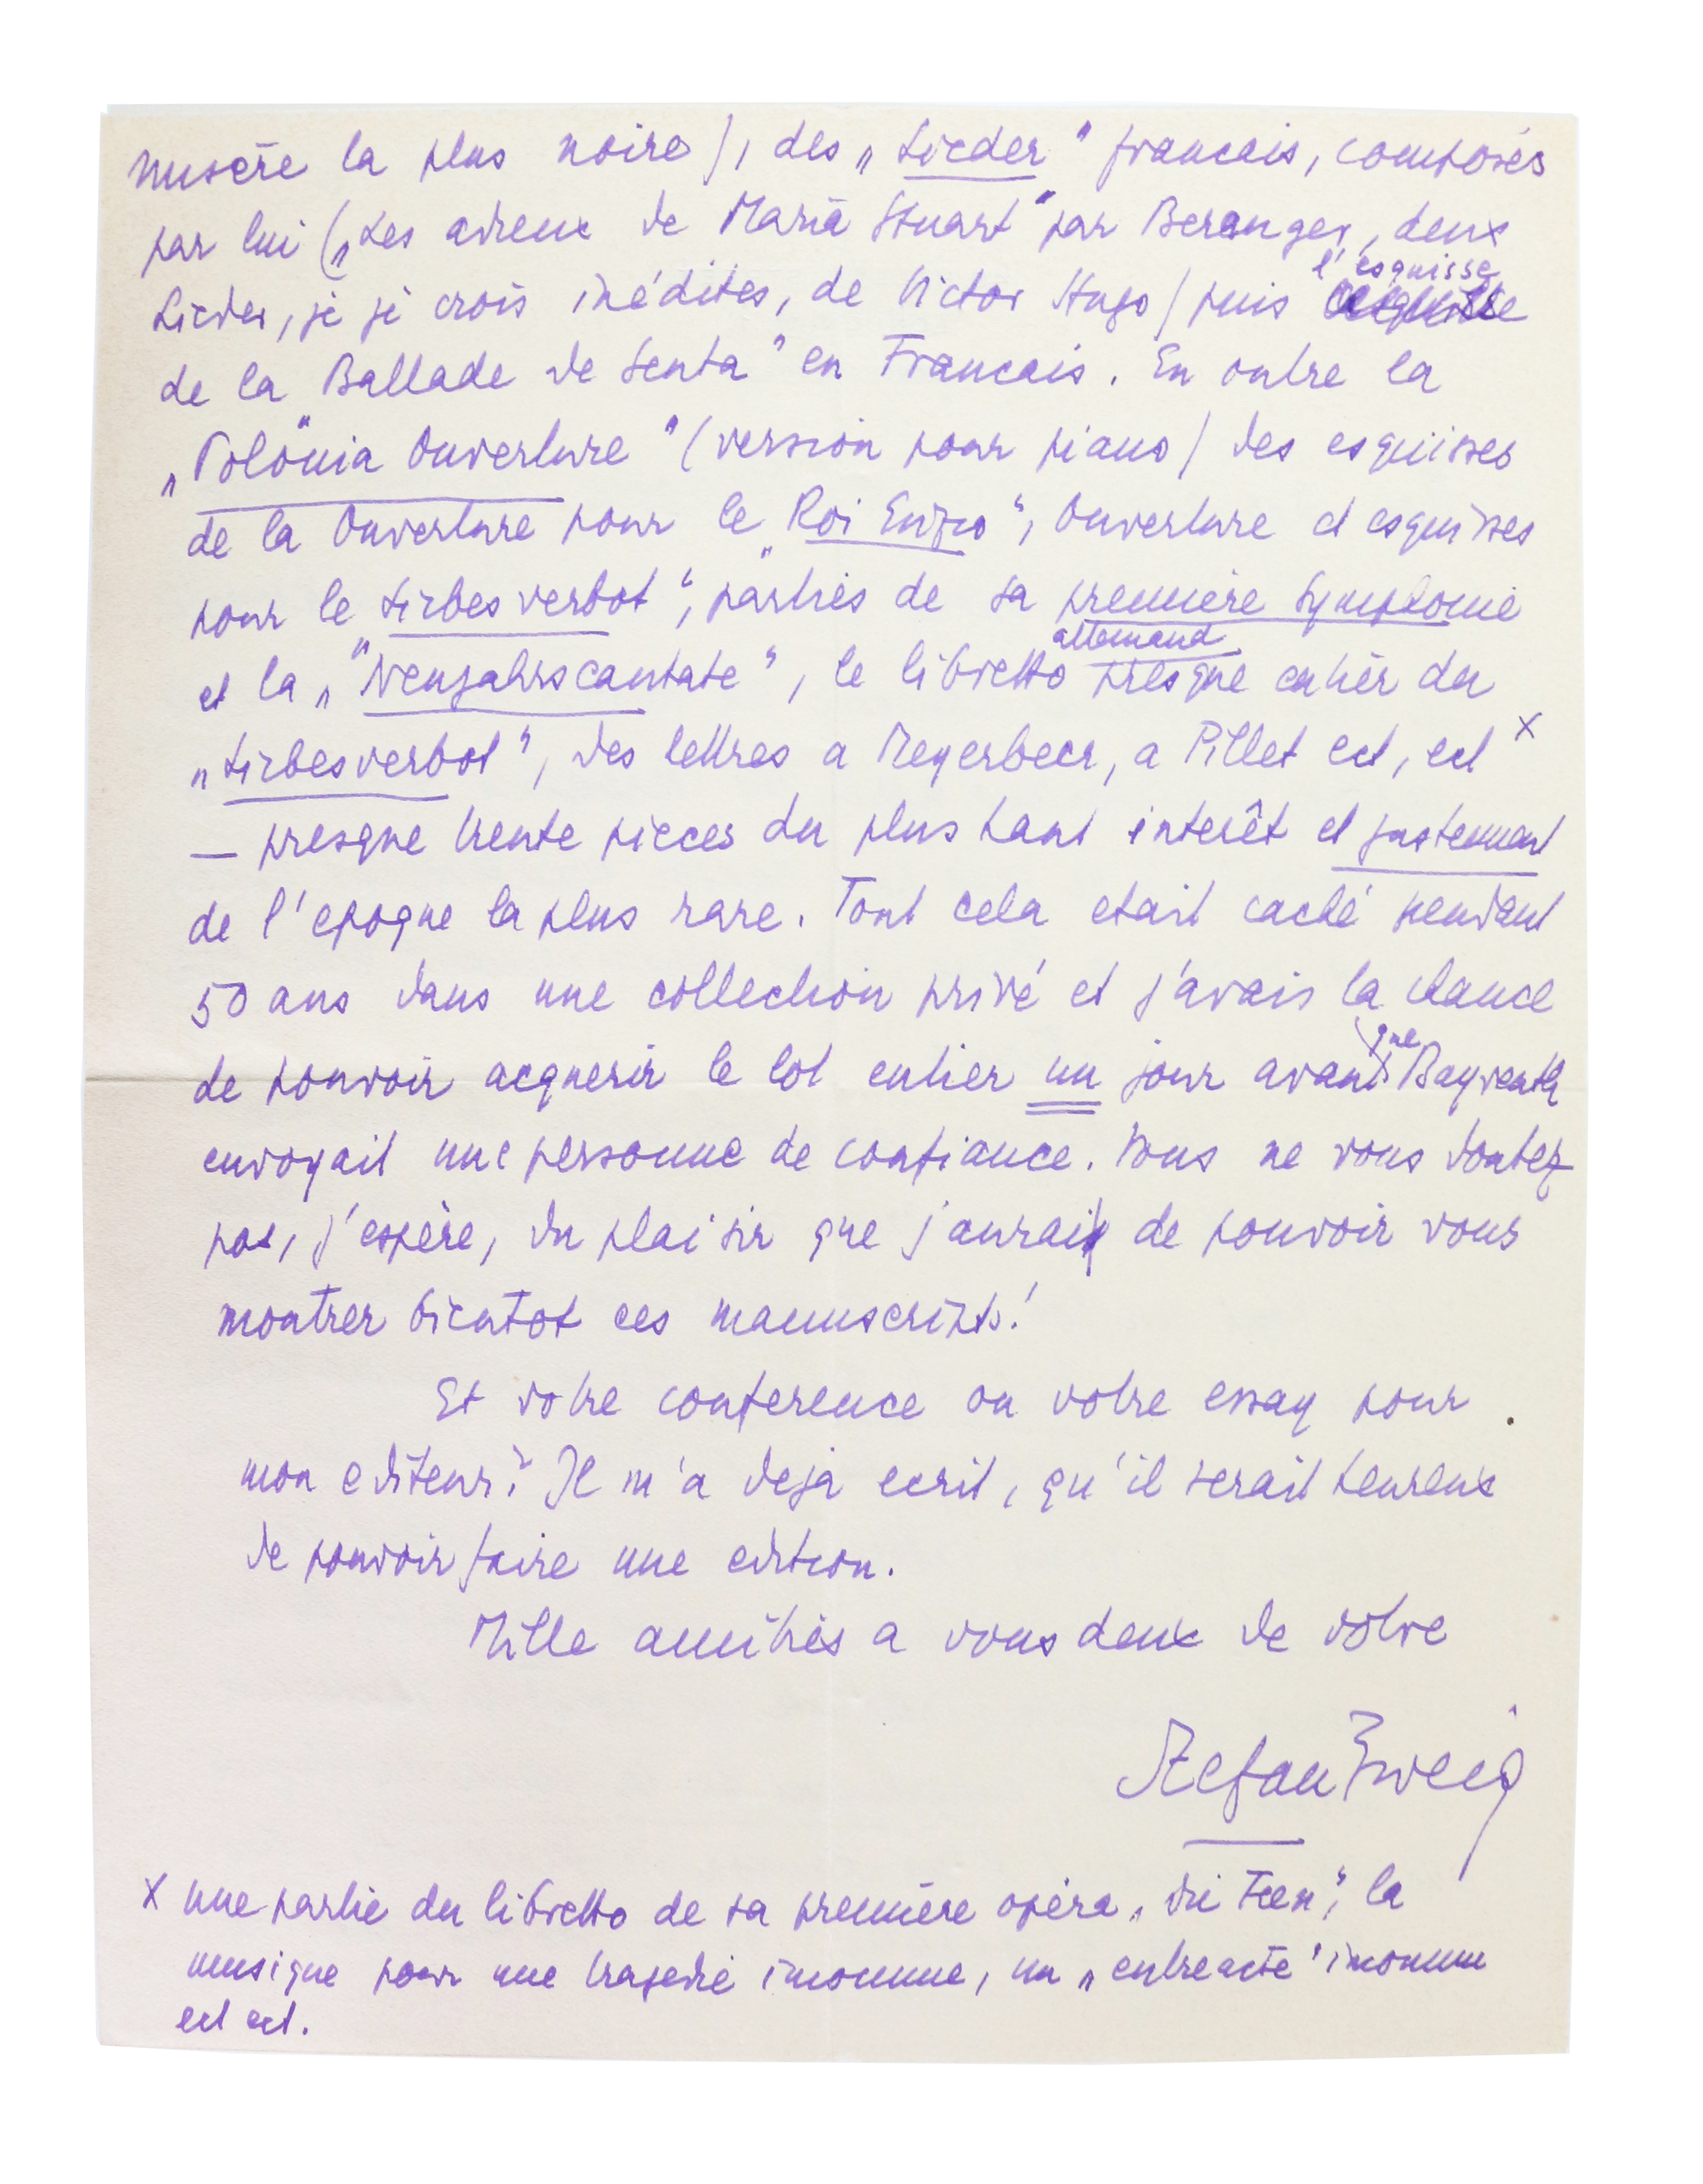 misère la plus noire), des „Lieder" francais, composés
par lui („Les adieux de Maria Stuart" par Beranger, deux
Lieder, je je crois inédites, de Victor Hugo) puis l'esquisse
de la „Ballade de Senta" en Francais. En outre la
„Polonia Ouverture" (version pour piano) des esquisses
de la Ouverture pour le „Roi Enzio", Ouverture et esquisses
pour le „Liebesverbot", parties de sa première Symphonie
et la „Neujahrscantate", le libretto allemand presque entier du
„Liebesverbot", des lettres a Meyerbeer, a Pillet ect, ect x
— presque trente pieces du plus haut interêt et justement
de l'epoque la plus rare. Tout cela etait caché pendant
50 ans dans une collection privé et j'avais la chance
de pouvoir acquerir le lot entier un jour avant que Bayreuth
envoyait une personne de confiance. Vous ne vous doutez
pas, j'espère, du plaisir que j'aurai de pouvoir vous
montrer bientot ces manuscripts!
Et votre conference ou votre essay pour
mon editeur? Il m'a deja ecrit, qu'il serait heureux
de pouvoir faire une edition.
Mille amitiés a vous deux de votre
Stefan Zweig
x une partie du libretto de sa première opéra „die Feen", la
musique pour une tragedie inconnue, un „entreacte" inconnu
ect ect.